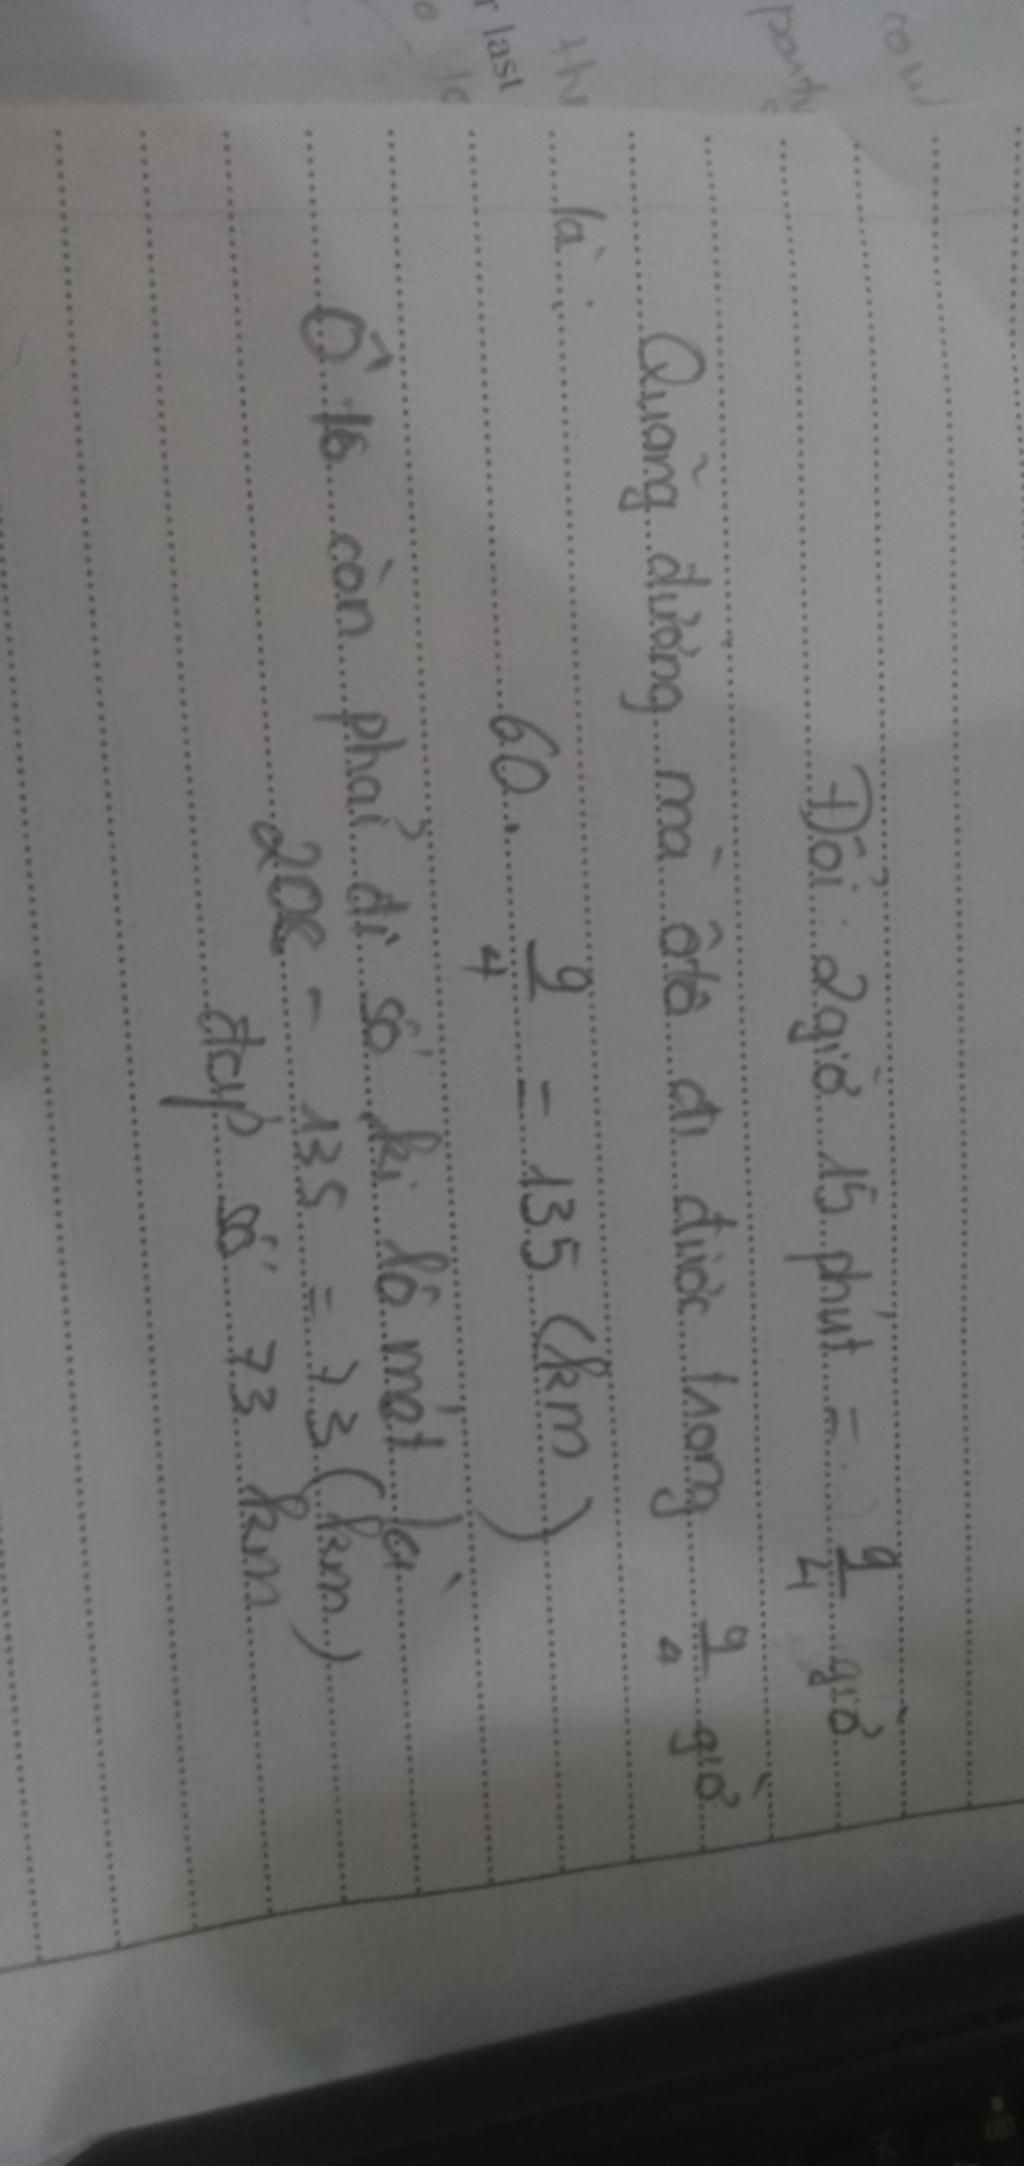 Đổi: 2 giờ 15 phút = 9/4 giờ
Quãng đường mà ôtô đi được trong 9/4 giờ
là:
60 . 9/4 = 135 (km)
Ô tô còn phải đi số ki lô mét là
208 - 135 = 73 (km)
đáp số 73 km
r last
th
party